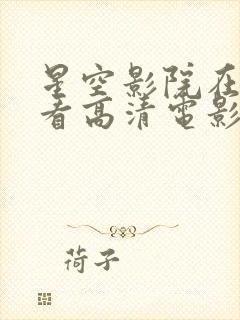 星空影院在
看高清電影
荷子